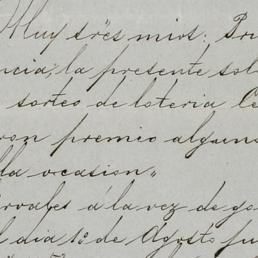 Muy Sres mios: Pru
ncia, la presente sol
sorteo de loteria Ce
ron premio alguno
lla vocasion"
rvales á la vez de go
l dia 1º de Agosto fu